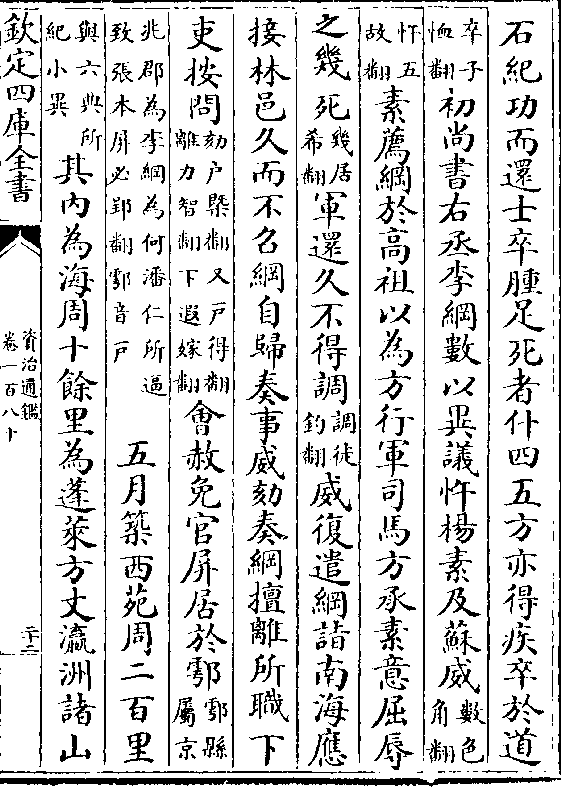 石紀功而還士卒腫足死者什四五方亦得疾卒於道
卒子恤翻初尚書右丞李綱數以異議忤楊素及蘇威數色角翻
忤五故翻素薦綱於高祖以為方行軍司馬方承素意屈辱
之幾死幾居希翻軍還久不得調調徒釣翻威復遣綱詣南海應
接林邑久而不召綱自歸奏事威劾奏綱擅離所職下
吏按問劾户槩翻又戸得翻離力智翻下遐嫁翻會赦免官屏居於鄠鄠縣屬京
兆郡為李綱為何潘仁所逼致張本屏必郢翻鄠音戸五月築西苑周二百里
與六典所紀小異其内為海周十餘里為蓬萊方丈瀛洲諸山
欽定四庫全書
資治通鑑
卷一百八十